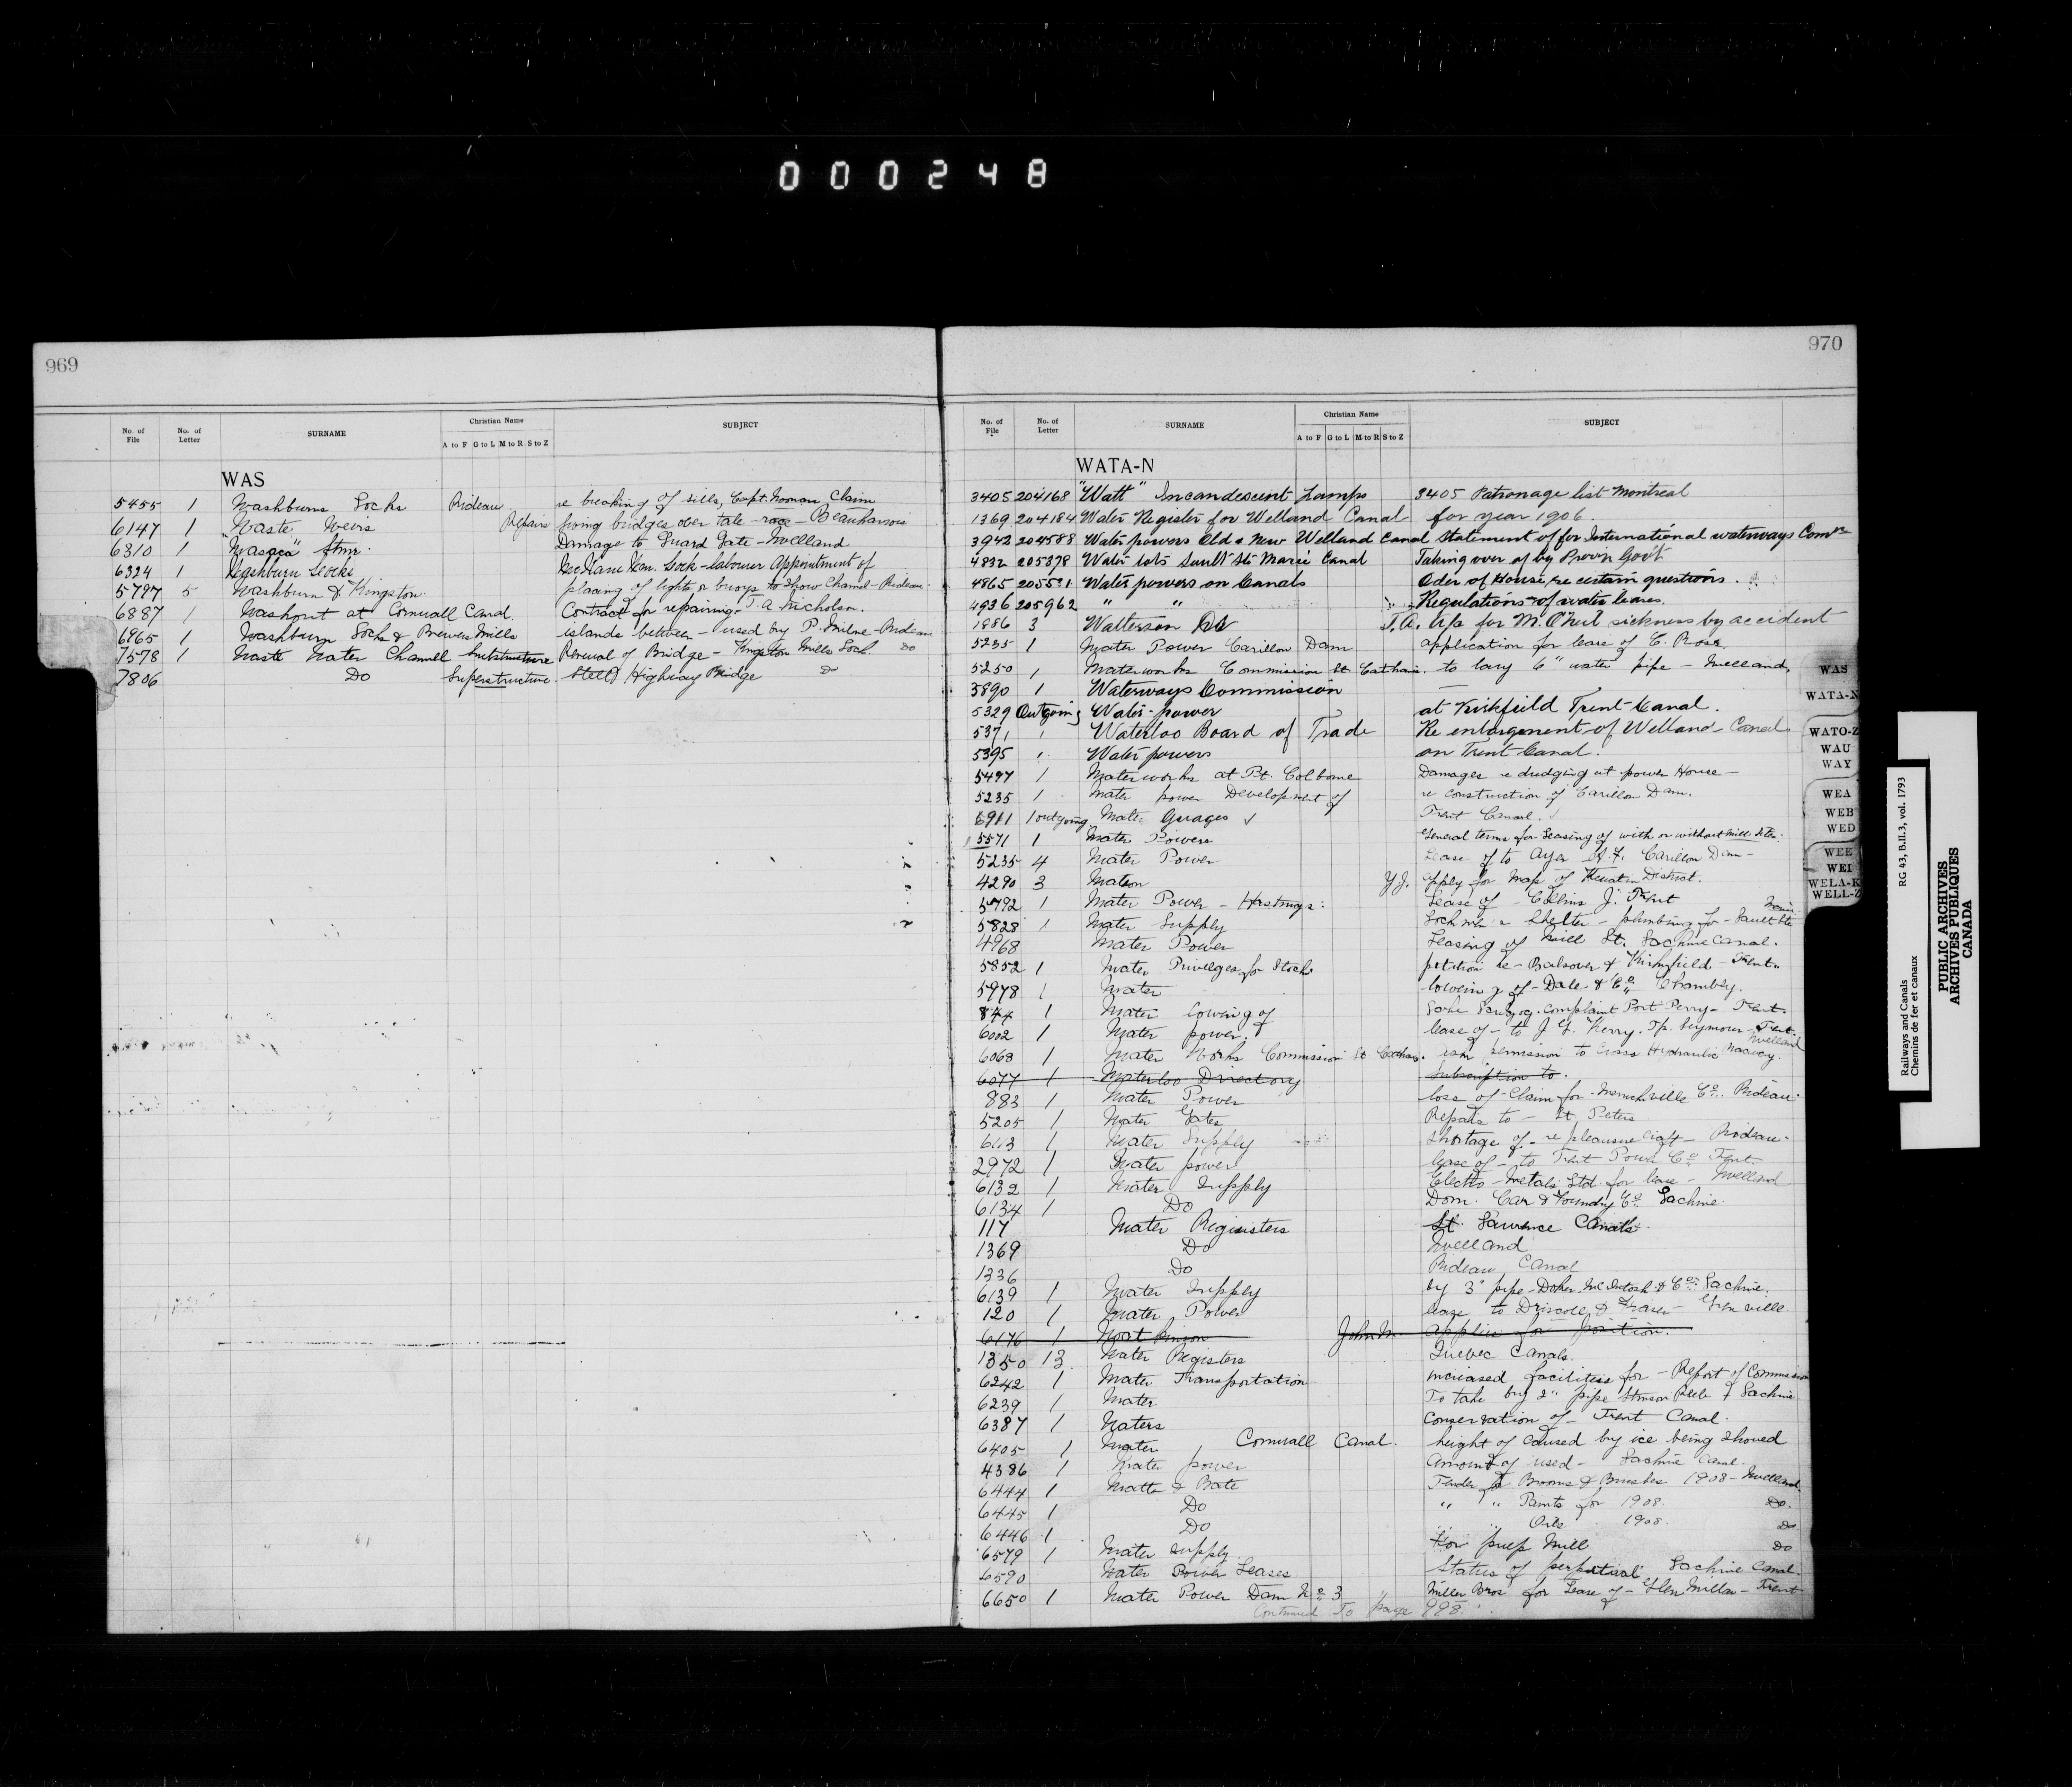 000248
969
No. of File No. of Letter SURNAME Christian Name A to F G to L M to R S to Z SUBJECT
WAS
5455 1 Washburns Locks Rideau re breaking of sills, Capt. Noonan Claim
6147 1 Waste Weirs Repairs fixing bridges over tale-race - Beauharnois
6310 1 "Wasaga" Stmr. Damage to Guard Gate - Welland
6324 1 Washburn Locks Wm. Lock-labourer Appointment of
5797 5 Washburn & Kingston placing of lights & buoys to show Channel - Rideau.
6887 1 Washout at Cornwall Canal. Contract for repairing - T.A. Nicholson.
6965 1 Washburn Locks & Brewers Mills islands between - used by P. Milne - Rideau
7578 1 Waste Water Channell Substructure Renewal of Bridge - Kingston Mills Lock. Do
7806 Do Superstructure. Steel Highway Bridge Do
970
No. of File No. of Letter SURNAME Christian Name A to F G to L M to R S to Z SUBJECT
WATA-N
3405 204168 "Watt" Incandescent Lamps 3405 Patronage list Montreal
1369 204184 Water Register for Welland Canal for year 1906.
3942 204588 Water powers Old & New Welland Canal Statement of for International waterways Comn
4832 205378 Water lots Sault Ste Marie Canal Taking over of by Provin Gov't
4865 2055 1 Water powers on Canals Oder of House, re certain questions.
4936 205962 " " Regulations of water leases.
1856 3 Watterson T.A. for M. O'Neil sickness by accident
5235 1 Water Power Carillon Dam application for lease of C. Ross.
5250 1 Waterworks Commission St Catharin. to lay 6" water pipe - Welland,
5890 1 Waterways Commission —
5329 Outgoing Water-power at Kirkfield Trent Canal.
5371 1 Waterloo Board of Trade Re enlargement of Welland Canal.
5395 " Water powers on Trent Canal.
5497 1 Waterworks at Pt. Colborne Damages re dredging at power House -
5235 1 Water power Development of re construction of Carillon Dam.
6911 1 outgoing Water Guages ✓ Trent Canal. ✓
5571 1 Water Powers General terms for leasing of with or without Mill Sites.
5235 4 Water Power Lease of to Ayer A.F. Carillon Dam -
4290 3 Watson Y.J. apply for Map of Keewatin District.
5792 1 Water Power - Hastings: Lease of - Collins J. Trent
5828 1 Water Supply Lock men's Shelter - plumbing for - Sault Ste Marie
4968 Water Power Leasing of Mill St. Lachine Canal.
5852 1 Water Privelges for Stock petition re - Bolsover & Kirkfield - Trent.
5978 1 Water lowering of - Dale & Co. Chambly.
844 1 Water lowing of Lake Scugog. Complaint Port Perry - Trent.
6002 1 Water power. lease of - to J.G. Kerry. Tp. Seymour - Trent.
6068 1 Water Works Commission St Cathar. permission to Cross Hydraulic Raceway. Welland
6077 1 Waterloo Directory Subscription to.
883 1 Water Power loss of - Claim for - Merrickville Co. Rideau.
5205 1 Water Gates Repairs to - St. Peters
6113 1 Water Supply shortage of - re pleasure craft - Rideau.
2972 1 Water power lease of - to Trent Power Co. Trent.
6132 1 Water Supply Electro-Metals Ltd. for lease - Welland
6134 1 Do Dom. Car & Foundry Co. Lachine.
117 Water Registers St. Lawrence Canals.
1369 Do Welland
1336 Do Rideau Canal
6139 1 Water Supply by 3" pipe - McIntosh & Co. Lachine.
120 1 Water Power lease to Driscoll & Fraser - Grenville.
6176 1 John M. Applies for position.
1350 13 Water Registers Quebec Canals.
6242 1 Water Transportation increased facilities for - Report of Commission
6239 1 Water To take by 2" pipe Stinson Reeb Lachine
6387 1 Waters Conservation of - Trent Canal.
6405 1 Water Cornwall Canal. height of caused by ice being shoved
4386 1 Water power Amount of used - Lachine Canal.
6444 1 Watts & Bate Tender for Brooms & Brushes 1908 - Welland.
6445 1 Do " " Paints for 1908. Do.
6446 1 Do " " Oils 1908. Do
6579 1 Water Supply For pulp Mill Do
6590 Water Power Leases Status of perpetual Lachine Canal.
6650 1 Water Power Dam No 3 Miller Bros for Lease of - Glen Miller - Trent
Continued To page 998.
WAS
WATA-N
WATO-Z
WAU
WAY
WEA
WEB
WED
WEE
WEI
WELA-K
WELL-Z
Railways and Canals RG 43, B.II.3, vol. 1793
Chemins de fer et canaux
PUBLIC ARCHIVES
ARCHIVES PUBLIQUES
CANADA